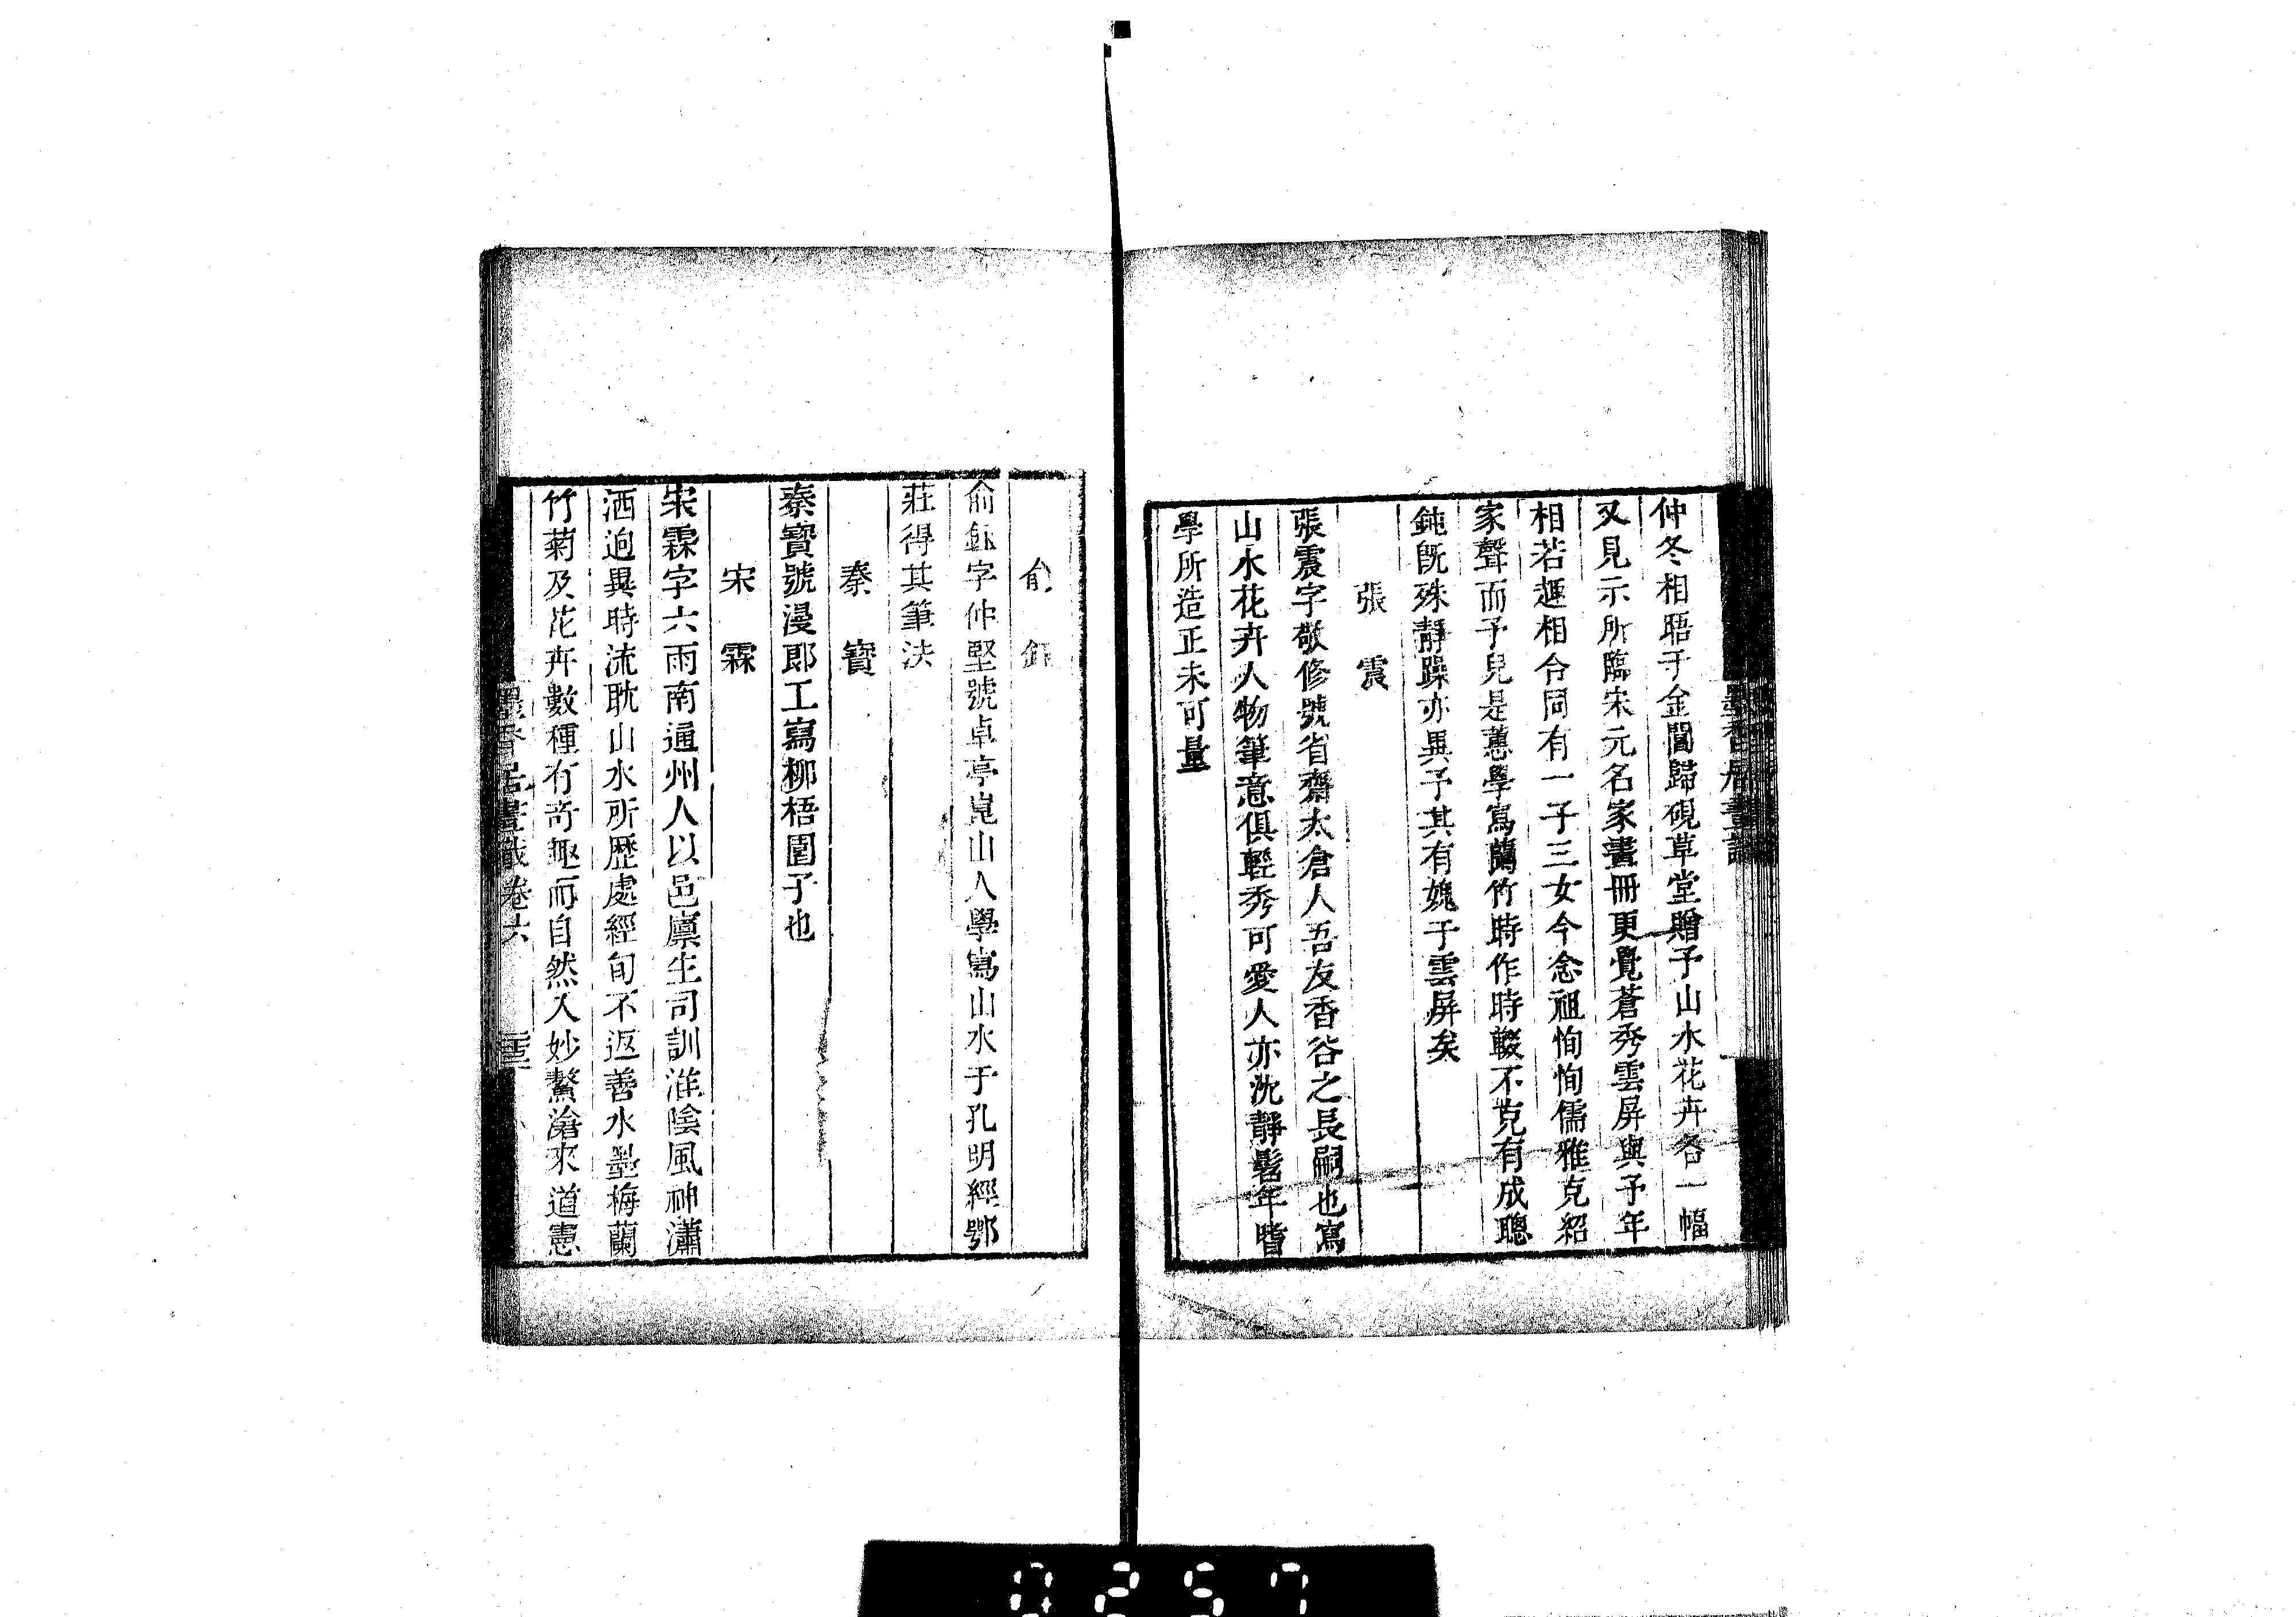 仲冬相晤于金閶歸硯草堂贈予山水花卉各一幅
又見示所臨宋元名家畫冊更覺蒼秀雲屏與予年
相若趣相合同有一子三女今念祖恂恂儒雅克紹
家聲而予兒是蕙學寫蘭竹時作時輟不克有成聰
鈍旣殊靜躁亦異予其有媿于雲屏矣
張震
張震字敬修號省齋太倉人吾友香谷之長嗣也寫
山水花卉人物筆意俱輕秀可愛人亦沈靜髫年嗜
學所造正未可量
俞鈺
俞鈺字仲堅號卓亭崑山人學寫山水于孔明經鄂
莊得其筆法
秦寶
秦寶號漫郎工寫柳梧圃子也
宋霖
宋霖字六雨南通州人以邑廩生司訓淮陰風神瀟
洒逈異時流耽山水所歷處經旬不返善水墨梅蘭
竹菊及花卉數種有奇趣而自然入妙鰲滄來道憲
墨香居畫識卷六
0257